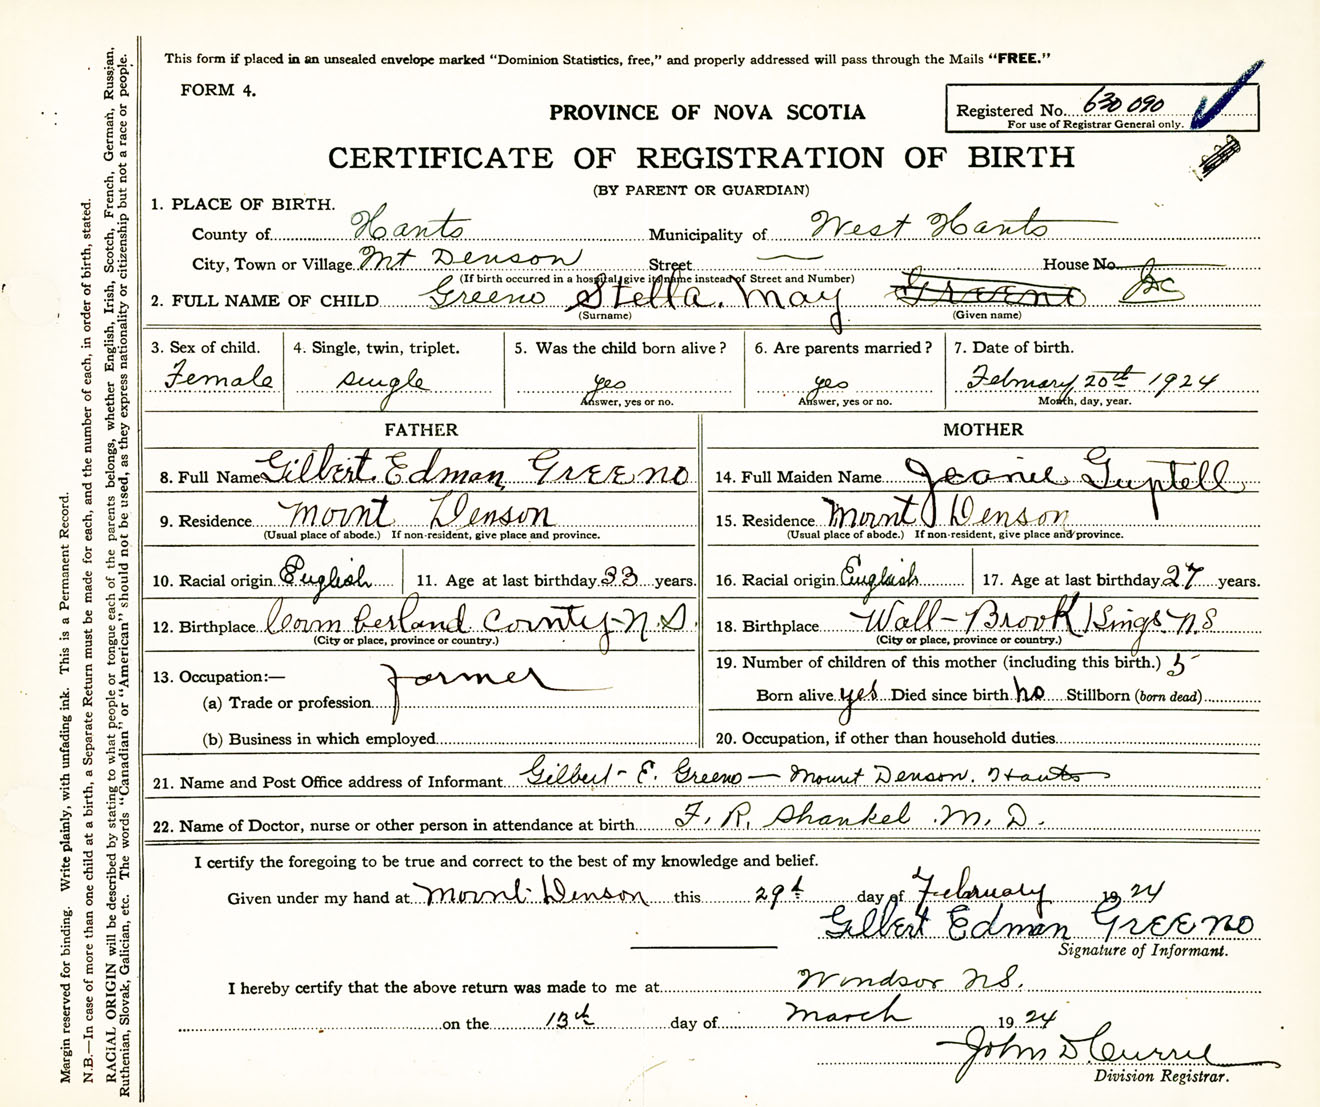 This form if placed in an unsealed envelope marked "Dominion Statistics, free," and properly addressed will pass through the Mails "FREE."
FORM 4.
Registered No. 630 090
For use of Registrar General only.
PROVINCE OF NOVA SCOTIA
CERTIFICATE OF REGISTRATION OF BIRTH
(BY PARENT OR GUARDIAN)
1. PLACE OF BIRTH.
County of Hants Municipality of West Hants
City, Town or Village Mt Denson Street House No.
(If birth occurred in a hospital, give its name instead of Street and Number)
2. FULL NAME OF CHILD Greeno Stella. May Greeno
(Surname) (Given name)
3. Sex of child. 4. Single, twin, triplet. 5. Was the child born alive? 6. Are parents married? 7. Date of birth.
Female single yes yes February 20th 1924
Answer, yes or no. Answer, yes or no. Month, day, year.
FATHER MOTHER
8. Full Name Gilbert. Edman Greeno 14. Full Maiden Name Jeanie Guptell
9. Residence Mount Denson 15. Residence Mount Denson
(Usual place of abode.) If non-resident, give place and province. (Usual place of abode.) If non-resident, give place and province.
10. Racial origin English 11. Age at last birthday 33 years. 16. Racial origin English 17. Age at last birthday 27 years.
12. Birthplace Coumberland County-N.S. 18. Birthplace Wall-Brook Kings N.S
(City or place, province or country.) (City or place, province or country.)
13. Occupation:— farmer 19. Number of children of this mother (including this birth.) 5
(a) Trade or profession Born alive yes Died since birth no Stillborn (born dead)
(b) Business in which employed 20. Occupation, if other than household duties
21. Name and Post Office address of Informant Gilbert- E. Greeno — Mount Denson. Hants
22. Name of Doctor, nurse or other person in attendance at birth F. R. Shankel M. D.
I certify the foregoing to be true and correct to the best of my knowledge and belief.
Given under my hand at Mount. Denson this 29th day of February 1924
Gilbert Edman Greeno
Signature of Informant.
I hereby certify that the above return was made to me at Windsor N.S.
on the 13th day of March 1924
John D Currie
Division Registrar.
Margin reserved for binding. Write plainly, with unfading ink. This is a Permanent Record.
N.B.—In case of more than one child at a birth, a Separate Return must be made for each, and the number of each, in order of birth, stated.
RACIAL ORIGIN will be described by stating to what people or tongue each of the parents belongs, whether English, Irish, Scotch, French, German, Russian,
Ruthenian, Slovak, Galician, etc. The words "Canadian" or "American" should not be used, as they express nationality or citizenship but not a race or people.